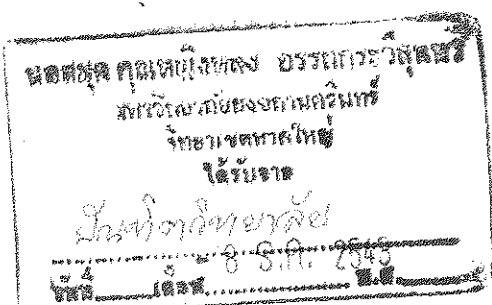 หอสมุด คุณหญิงหลง อรรถกระวีสุนทร
มหาวิทยาลัยสงขลานครินทร์
วิทยาเขตหาดใหญ่
ได้รับจาก
บัณฑิตวิทยาลัย
วันที่ เดือน - 8 ธ.ค. 2545 พ.ศ.